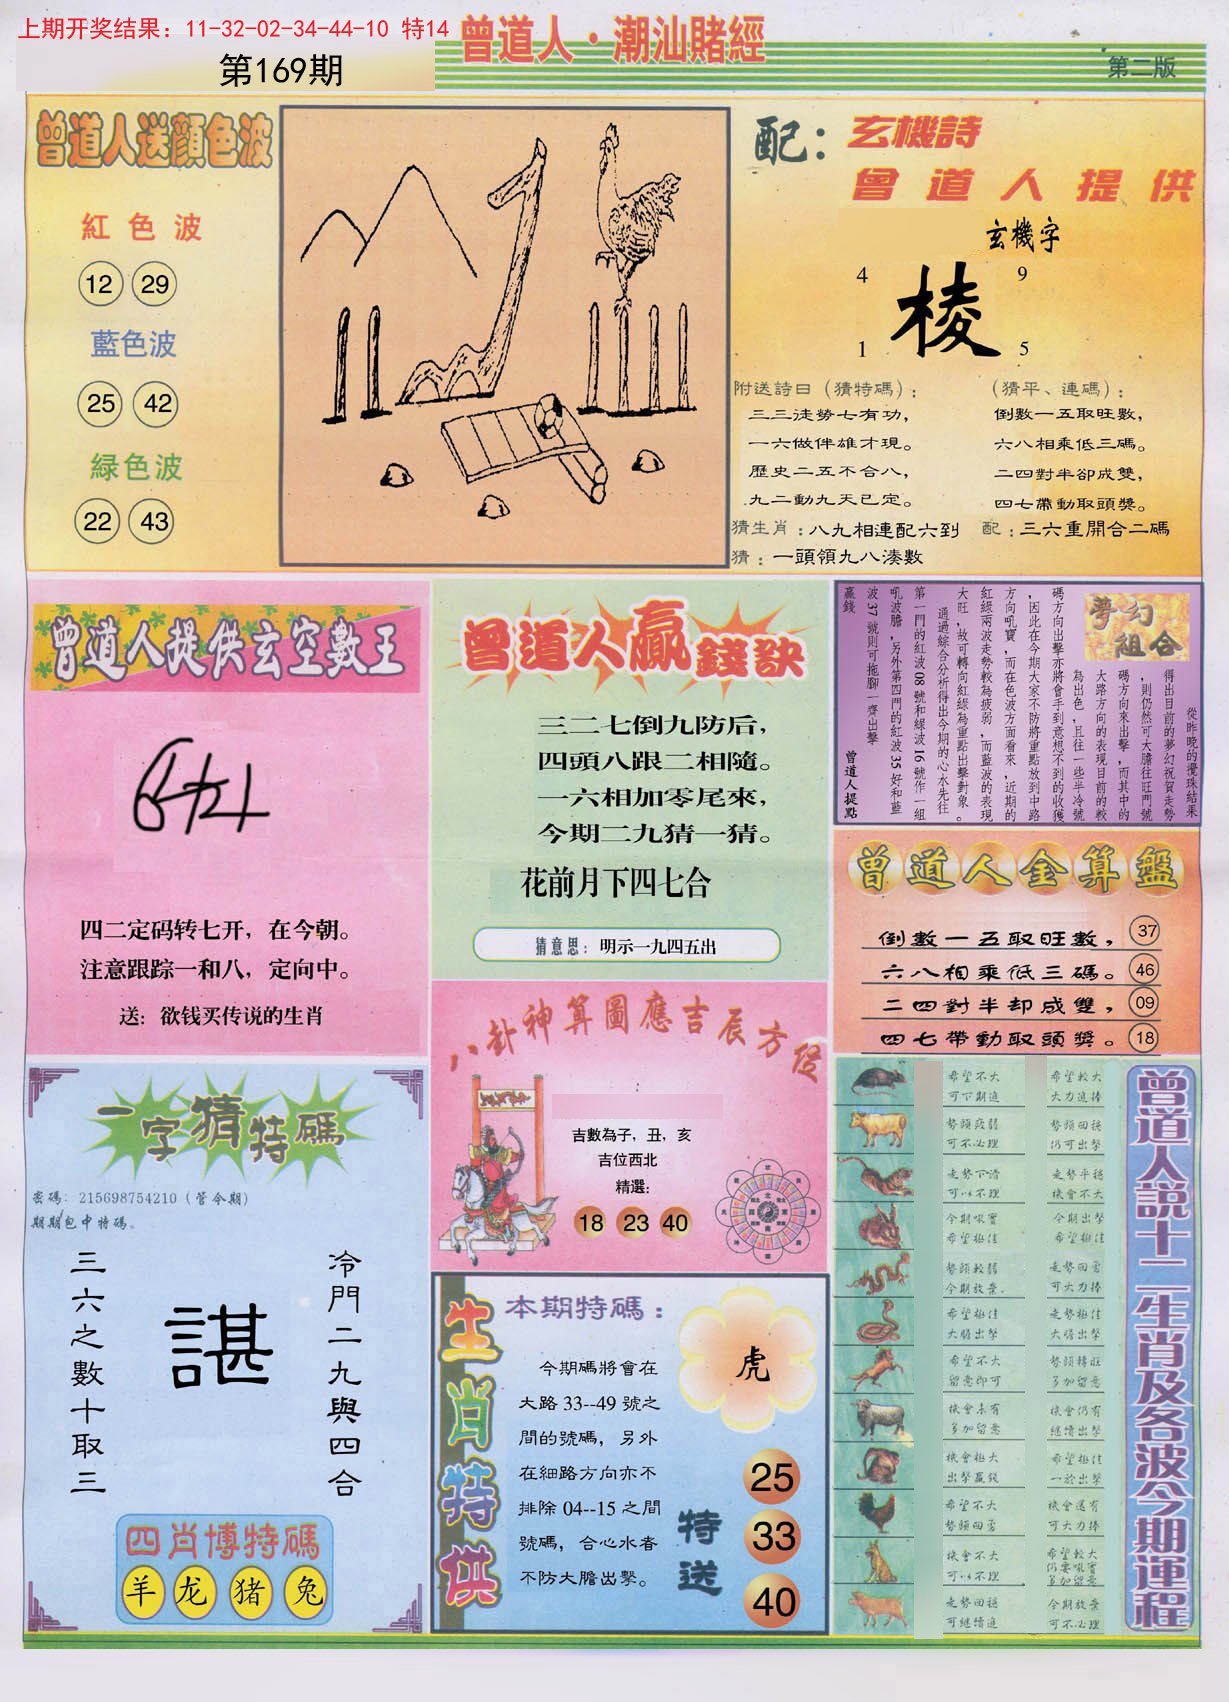 上期开奖结果：11-32-02-34-44-10 特14
第169期
曾道人·潮汕賭經
第二版
曾道人送顔色波
紅色波
12 29
藍色波
25 42
緑色波
22 43
配：玄機詩
曾道人提供
玄機字
4 9
棱
1 5
附送詩曰（猜特碼）：
三三徒勞七有功，
一六做伴雄才現。
歷史二五不合八，
九二動九天已定。
（猜平、連碼）：
倒數一五取旺數，
六八相乘低三碼。
二四對半卻成雙，
四七帶動取頭獎。
猜生肖：八九相連配六到
配：三六重開合二碼
猜：一頭領九八湊數
曾道人提供玄空數王
四二定码转七开，在今朝。
注意跟踪一和八，定向中。
送：欲钱买传说的生肖
曾道人贏錢訣
三二七倒九防后，
四頭八跟二相隨。
一六相加零尾來，
今期二九猜一猜。
花前月下四七合
猜意思：明示一九四五出
夢幻組合
從昨晚的攪珠結果
得出目前的夢幻祝賀走勢
，則仍然可大膽往旺門號
碼方向來出擊，而其中的
大路方向的表現目前的較
為出色，且往一些半冷號
碼方向出擊亦將會手到意想不到的收獲
，因此在今期大家不防將重點放到中路
方向吼寶，而在色波方面看來，近期的
紅綠兩波走勢較為疲弱，而藍波的表現
大旺，故可轉向紅綠為重點出擊對象。
通過綜合分析得出今期的心水先往
第一門的紅波08號和緑波16號作一組
吼波膽，另外第四門的紅波35好和藍
波37號則可拖腳一齊出擊
贏錢
曾道人提點
曾道人金算盤
倒數一五取旺數， 37
六八相乘低三碼。 46
二四對半却成雙， 09
四七帶動取頭獎。 18
八卦神算圖應吉辰方位
吉數為子，丑，亥
吉位西北
精選：
18 23 40
一字猜特碼
密碼：215698754210（管今期）
期期包中特碼。
冷門二九與四合
諶
三六之數十取三
四肖博特碼
羊 龙 猪 兔
生肖特供
本期特碼：
虎
今期碼將會在
大路33--49號之
間的號碼，另外
在細路方向亦不
排除04--15之間
號碼，合心水者
不防大膽出擊。
特送
25
33
40
曾道人説十二生肖及各波今期運程
希望不大 希望較大
可下期追 大力追捧
勢頭疲弱 勢頭回穩
可不必理 仍可出擊
走勢下滑 走勢平穩
可以不理 機會不大
今期吼寶 今期出擊
希望極佳 希望極佳
勢頭較弱 走勢回勇
今期放棄. 可大力捧
希望極佳 走勢極佳
大膽出擊 大膽出擊
希望不大 勢頭轉旺
留意即可 多加留意
機會未有 機會仍有
多加留意 繼續出擊
機會極大 希望極佳
出擊贏錢 一於出擊
希望不大 機會還有
勢頭回勇 可大力捧
機會不大 希望較大
可以不理 仍要吼實
多加留意
走勢回穩 今期放棄
可繼續追 可不必理